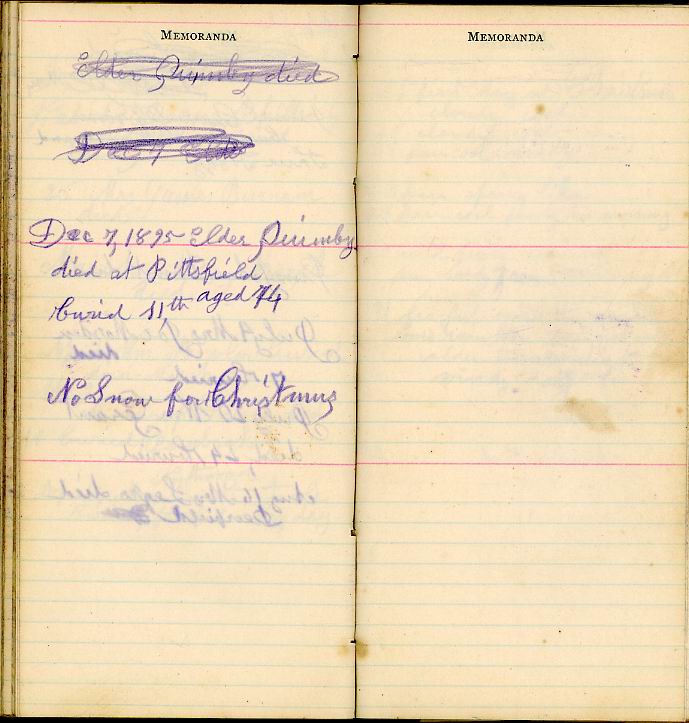 MEMORANDA
Elder Quimby died
Dec 7
Dec 7, 1895 Elder Quimby
died at Pittsfield
buried 11th aged 74
No Snow for Christmas
MEMORANDA